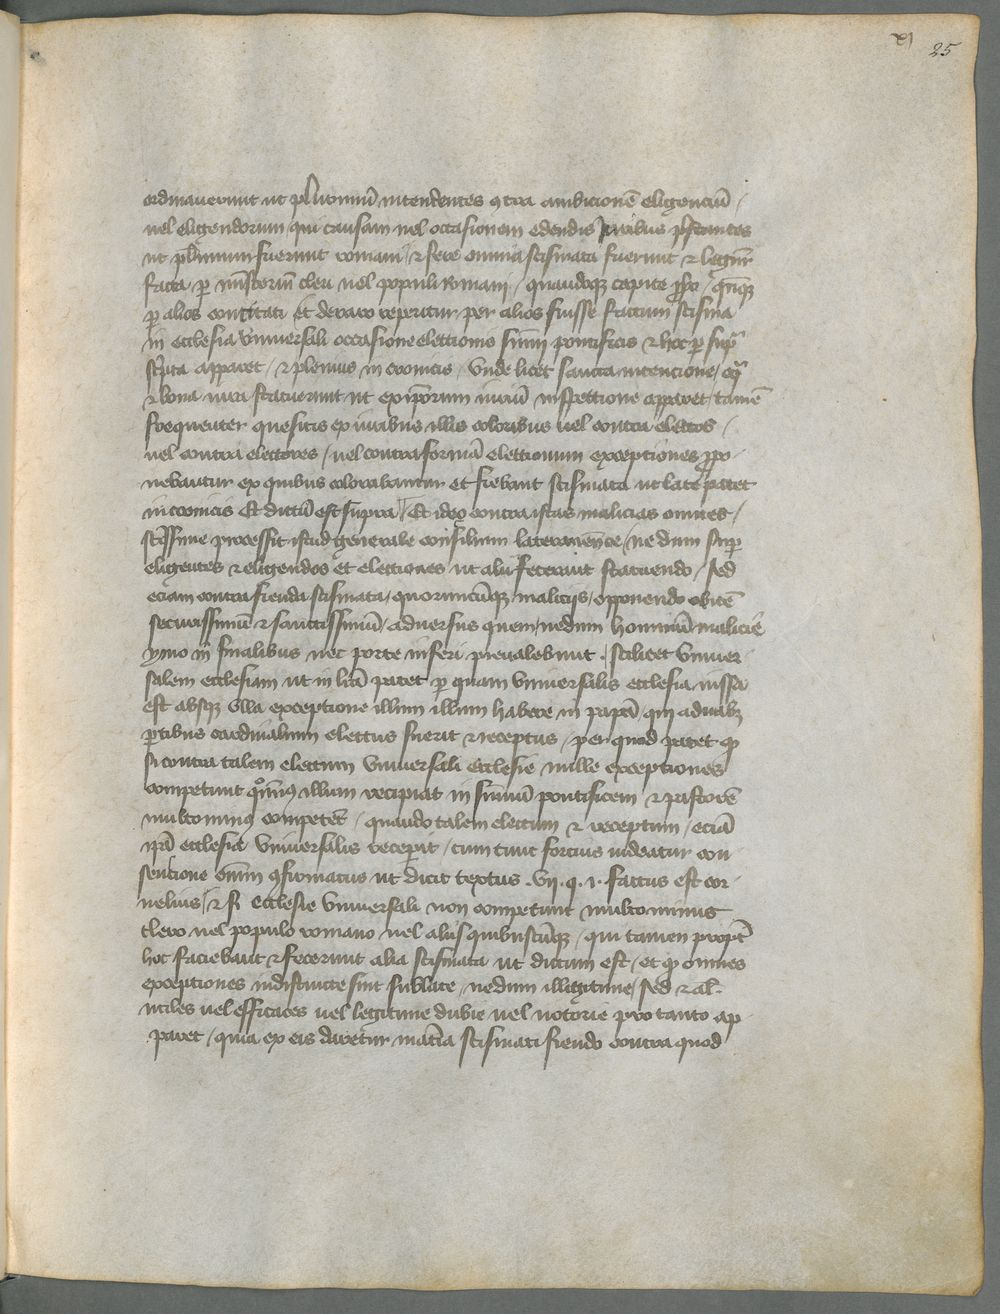 xj
25
ordinaverunt ut plurimū intendentes ꝯtra ambicionē eligenciū /
uel eligendorum qui causam uel occasionem edendis Juribus pͬstantes
ut plimum fuerunt romani / ⁊ fere omnia scismata fuerunt ⁊
facta / ꝑ cleri uel populi Romani / quandoqꝫ
ꝑ alios concitati Et de raro reperitur per alios fuisse factum scisma
in ecclesia vniuersali occasione electionis sūmi pontificis ⁊ hoc ꝑ supͣ
scͥpta apparet / ⁊ plenius in cronicis / Vnde licet sancta intencione /
⁊ bona iura statuerunt ut ex ipōrum iuriū inspectione apparet / tamē
frequenter quesitis ex iuribus illis coloribus uel contra electos /
uel contra electores / uel contra formā electionum exceptiones ꝓpo
nebantur ex quibus colorabantur et fiebant scismata ut late patet
in cronicis Et dictū est supra / Et ideo contra istas malicias omnes /
processit istud generale consilium lateranēnce / ne dum suꝑ
eligentes ⁊ eligendos et electiones ut alii fecerant statuendo / Sed
eciam contra fienda scismata / quorumcūqꝫ malicijs / opponendo obicē
securissimū ⁊ sanctissimū / aduersus quem / nedum hominū malicie
ymo in finalibus nec porte inferi preualebunt / scilicet vniuer
salem ecclesiam ut in lrā patet ꝑ quam vniuersalis ecclesia iussa
est absqꝫ vlla exceptione illum illum habere in papā / qui a duabꝫ
ꝑtibus cardinalium electus fuerit ⁊ receptus / per quod patet ꝙ
si contra talem electum vniuersali ecclesie mille exceptiones
competunt illum recipiat in sūmū pontificem ⁊ pastorē
multominꝰ competēt / quando talem electum ⁊ receptum / eciā
ecclesia vniuersalis receperit / cum tunc forcius uideatur con
sencione omīm ꝯfirmatus ut dicit textus . vij . q . i . factus est cor
nelius / ⁊ si ecclesie vniuersali non competunt multominus
clero uel populo romano uel aliis quibuscūqꝫ / qui tamen proptē
hoc faciebant ⁊ fecerunt alia scismata ut dictum est / et ꝙ omnes
exceptiones indistincte sint sublate / nedum illegitime / sed ⁊ al̄
utiles uel efficaces uel legitime dubie uel notorie pro tanto ap
paret / quia ex eis daretur matīa scismati fiendo contra quod